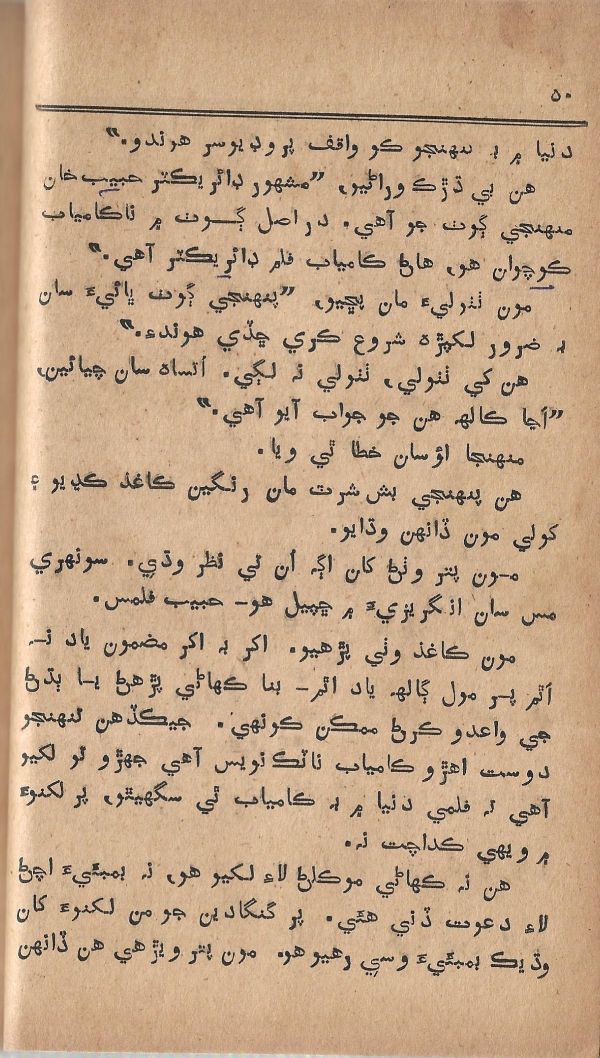 ۵۰
دنيا ۾ بہ تنهنجو ڪو واقف پروڊيوسر هوندو.”
هن بي ڌڙڪ ورائيو، “مشهور ڊائريڪٽر حبيب خان
منهنجي ڳوٺ جو آهي. دراصل ڳـوٺ ۾ ناڪامياب
ڪوچوان هو، هاڻ ڪامياب فلم ڊائريڪٽر آهي.”
مون ٺٺوليءَ مان پڇيو، “پنهنجي ڳوٺ ڀائيءَ سان
بہ ضرور لکپڙهہ شروع ڪري ڇڏي هوندءِ.”
هن کي ٺٺولي، ٺٺولي نہ لڳي. اُتساهہ سان چيائين،
“اڄا ڪالهہ هن جو جواب آيو آهي.”
منهنجا اؤسان خطا ٿي ويا.
هن پنهنجي بش شرٽ مان رنگين ڪاغذ ڪڍيو ۽
کولي مون ڏانهن وڌايو.
مـون پتر وٺڻ کان اڳہ اُن تي نظر وڌي. سونهري
مس سان انگريزيءَ ۾ ڇپيل هو- حبيب فلمس.
مون ڪاغذ وٺي پڙهيو. اکر بہ اکر مضمون ياد نـہ
اٿم پـر مول ڳالهہ ياد اٿم- بنا ڪهاڻي پڙهڻ يـا ٻڌڻ
جي واعدو ڪرڻ ممڪن ڪونهي. جيڪڏهن تنهنجو
دوست اهڙو ڪامياب ناٽڪ نويس آهي جهڙو تو لکيو
آهي تہ فلمي دنيا ۾ بہ ڪامياب ٿي سگهيٿو، پر لکنوءَ
۾ ويهي ڪداچت نہ.
هن نہ ڪهاڻي موڪلڻ لاءِ لکيو هو، نہ بمبئيءَ اچڻ
لاءِ دعوت ڏني هئي. پر گنگادين جو من لکنوءَ کان
وڌيڪ بمبئيءَ وسي رهيو هو. مون پتر ويڙهي هن ڏانهن